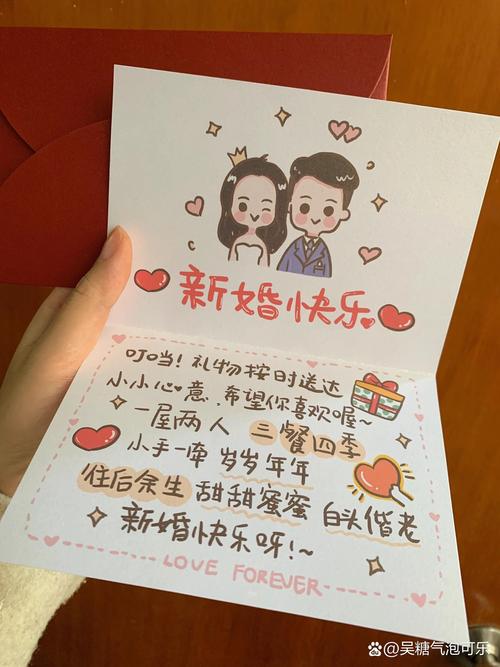 新婚快乐
叮当！礼物按时送达
小小心意，希望你喜欢喔~
一屋两人 三餐四季
小手一牵 岁岁年年
往后余生 甜甜蜜蜜 白头偕老
新婚快乐呀！~
LOVE FOREVER
@吴糖气泡可乐